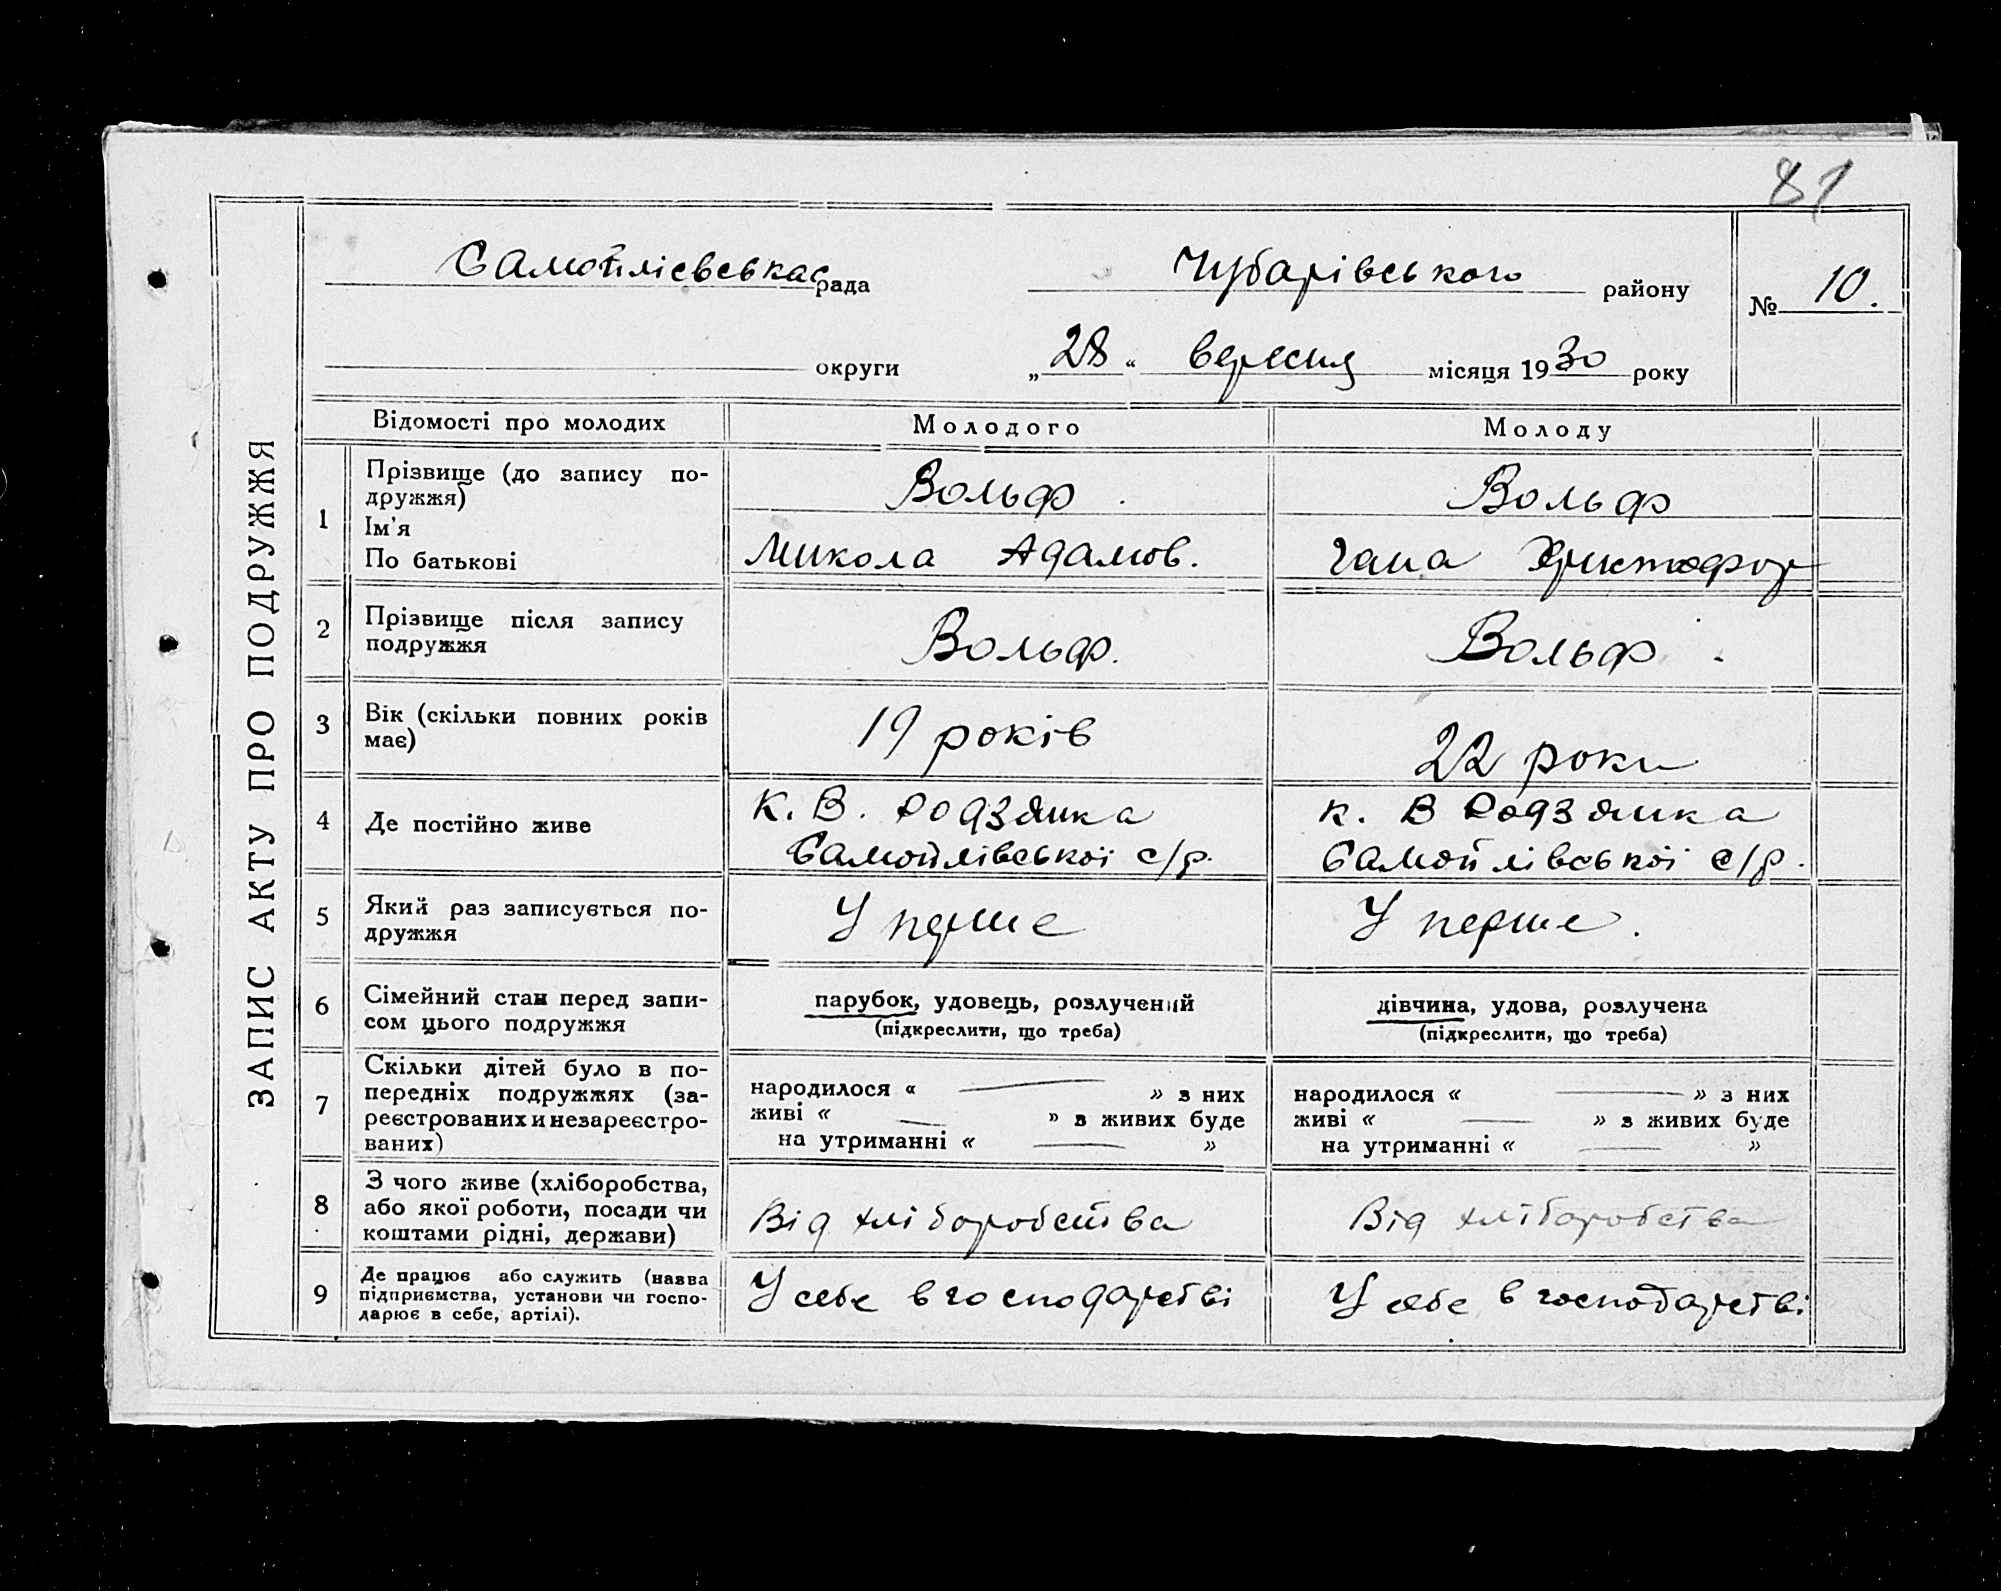 81
ЗАПИС АКТУ ПРО ПОДРУЖЖЯ
Самойлієвська рада
Чубарівського району
№ 10.
округи
„28“ вересня місяця 1930 року
Відомості про молодих
Молодого
Молоду
1
Прізвище (до запису по-
дружжя)
Ім'я
По батькові
Вольф
Микола Адамов.
Вольф
Гана Христофор
2
Прізвище після запису
подружжя
Вольф.
Вольф.
3
Вік (скільки повних років
має)
19 років
22 роки
4
Де постійно живе
к. В. Родзянка
Самойлівської с/р.
к. В Родзянка
Самойлівської с/р.
5
Який раз записується по-
дружжя
У перше
У перше.
6
Сімейний стан перед запи-
сом цього подружжя
парубок, удовець, розлучений
(підкреслити, що треба)
дівчина, удова, розлучена
(підкреслити, що треба)
7
Скільки дітей було в по-
передніх подружжях (за-
реєстрованих и незареєстро-
ваних)
народилося « — » з них
живі « — » з живих буде
на утриманні « — »
народилося « — » з них
живі « — » з живих буде
на утриманні « — »
8
З чого живе (хліборобства,
або якої роботи, посади чи
коштами рідні, держави)
Від хліборобства
Від хліборобства
9
Де працює або служить (назва
підприємства, установи чи госпо-
дарює в себе, артілі).
У себе в господарстві
У себе в господарстві